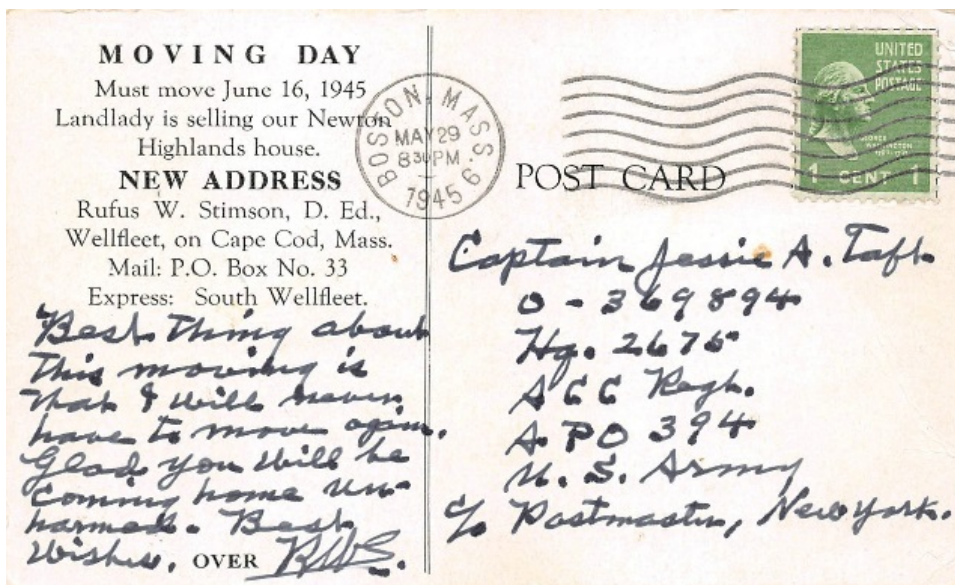 MOVING DAY
Must move June 16, 1945
Landlady is selling our Newton
Highlands house.
NEW ADDRESS
Rufus W. Stimson, D. Ed.,
Wellfleet, on Cape Cod, Mass.
Mail: P.O. Box No. 33
Express: South Wellfleet.
Best thing about
this moving is
that I will never
have to move again.
Glad you will be
coming home un-
harmed. Best
Wishes. OVER RWS.
BOSTON, MASS. 6
MAY 29
8 30 PM
1945
UNITED
STATES
POSTAGE
GEORGE
WASHINGTON
1 CENT 1
POST CARD
Captain Jessie A. Taft
O-369894
Hq. 2675
A C C Regt.
A PO 394
U. S. Army
c/o Postmaster, New York.